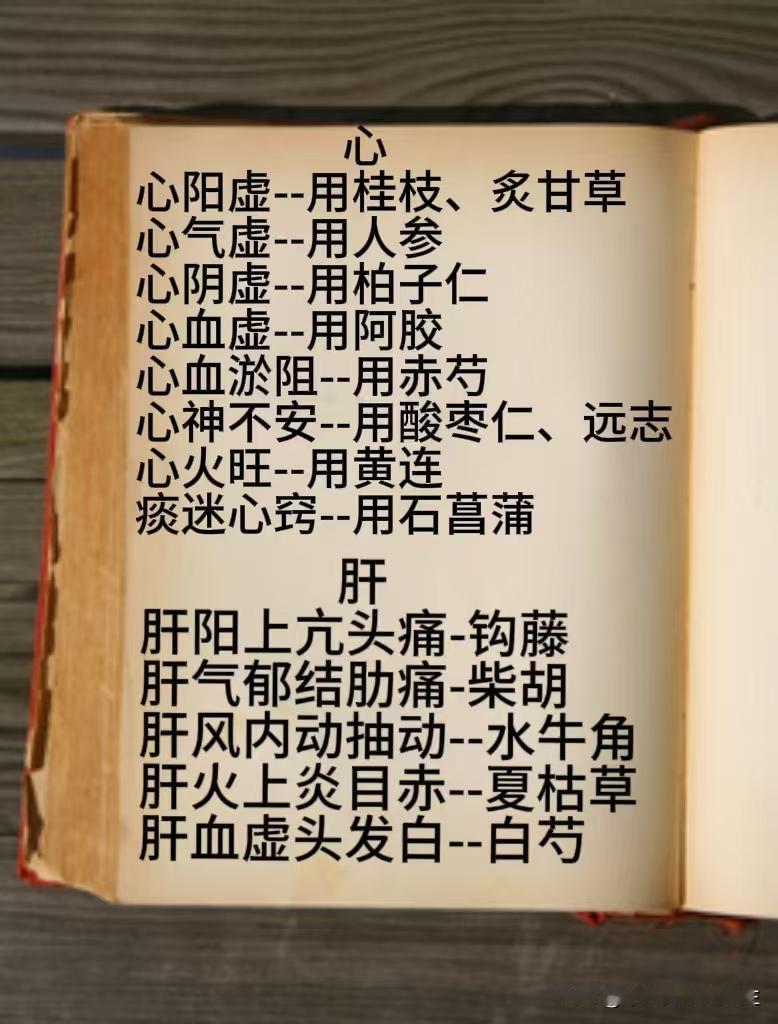 心
心阳虚--用桂枝、炙甘草
心气虚--用人参
心阴虚--用柏子仁
心血虚--用阿胶
心血淤阻--用赤芍
心神不安--用酸枣仁、远志
心火旺--用黄连
痰迷心窍--用石菖蒲
肝
肝阳上亢头痛-钩藤
肝气郁结肋痛-柴胡
肝风内动抽动--水牛角
肝火上炎目赤--夏枯草
肝血虚头发白--白芍